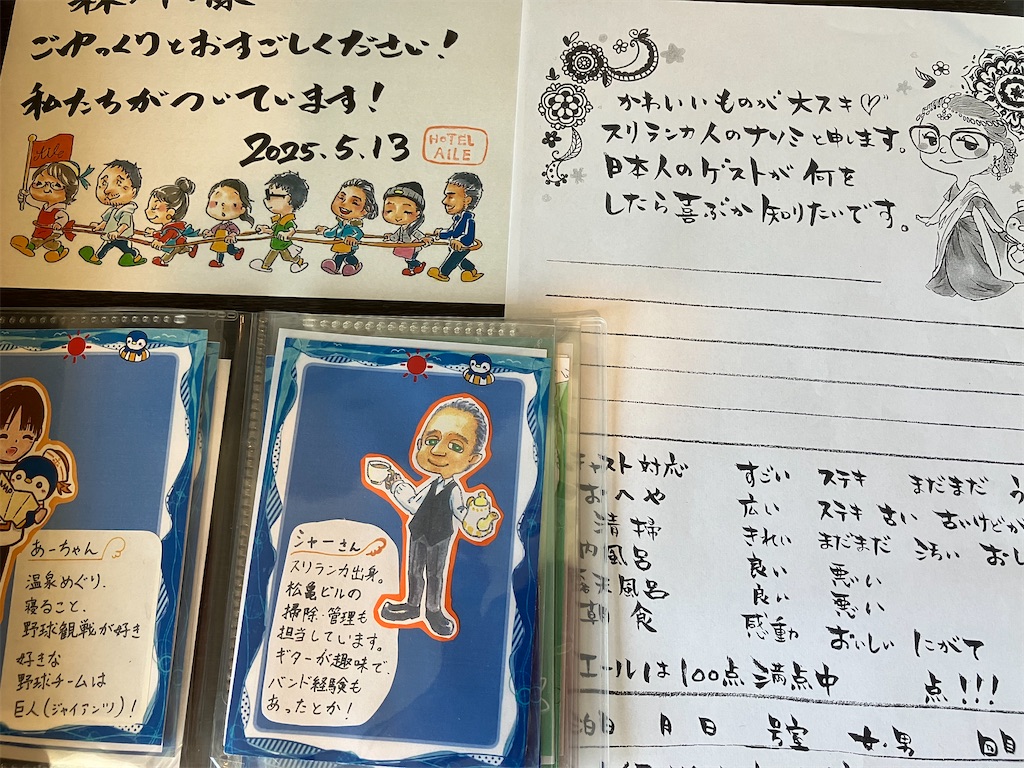 ごゆっくりとおすごしください!
私たちがついています!
2025.5.13
HOTEL
AILE
Aile
かわいいものが大スキ♡
スリランカ人のナソミと申します。
日本人のゲストが何を
したら喜ぶか知りたいです。
あーちゃん
温泉めぐり、
寝ること、
野球観戦が好き
好きな
野球チームは
巨人(ジャイアンツ)!
シャーさん
スリランカ出身。
松亀ビルの
掃除・管理も
担当しています。
ギターが趣味で、
バンド経験も
あったとか!
スト対応 すごい ステキ まだまだ
おへや 広い ステキ 古い 古いけど
清掃 きれい まだまだ 汚い
内風呂 良い 悪い
風呂 良い 悪い
朝食 感動 おいしい にがて
エールは100点満点中 点!!!
泊日 月 日 号室 女・男 回目